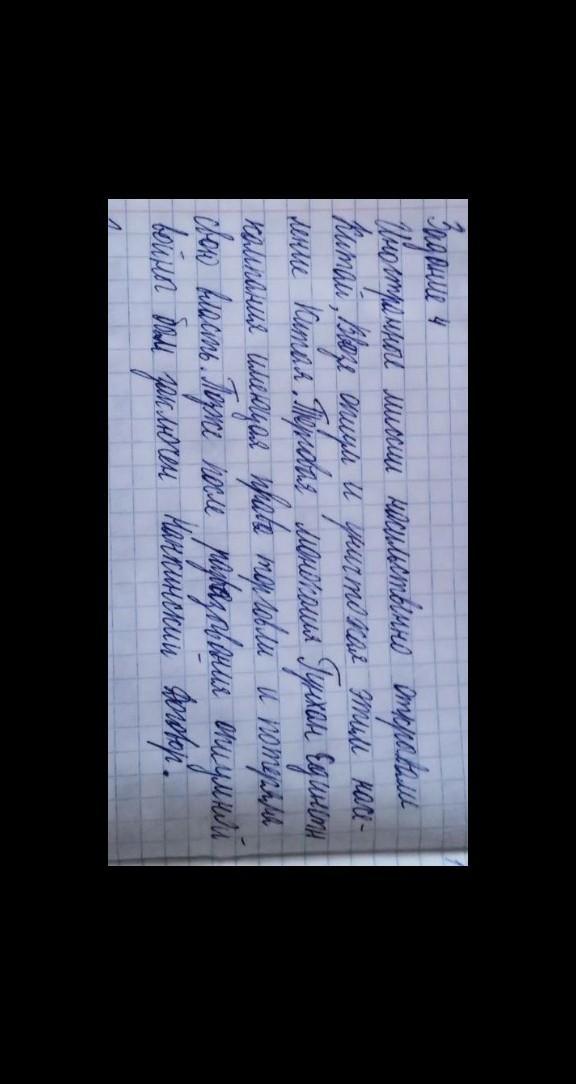 Задание 4
Иностранцы насильственно открывали
Китай, Ввозя опиум и уничтожая этим насе-
ление Китая. Торговая монополия Гунхан единствен
компания имеющая права торговли и потеряла
свою власть. Позже после развязывания опиумной
война был заключен Нанкинский договор.